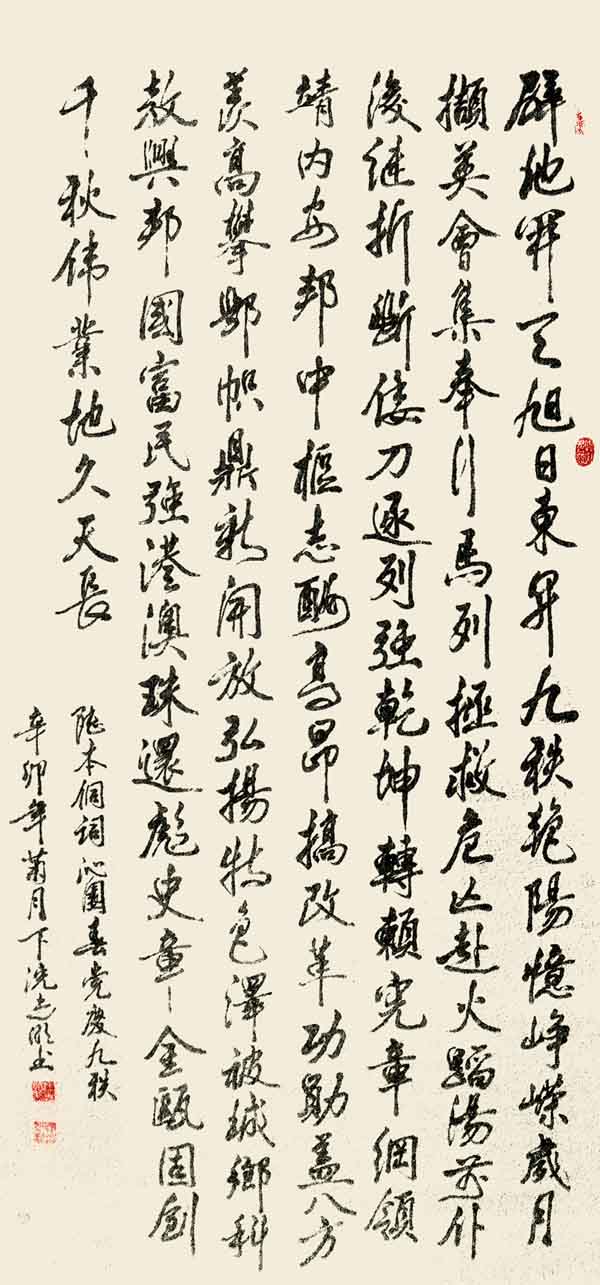 辟地開天旭日東昇九秩艳陽憶峥嵘歲月
擷英會集奉行馬列拯救危亡赴火蹈湯前仆
後继折斷倭刀逐列强乾坤轉賴宪章綱領
靖内安邦中樞志酬高昂搞改革功勋盖八方
羡高攀鄧帜鼎新開放弘揚特色澤被城鄉科
教興邦國富民强港澳珠還彪史章金甌固創
千秋伟業地久天長
本侗詞沁園春党慶九秩
辛卯年菊月下浣志書